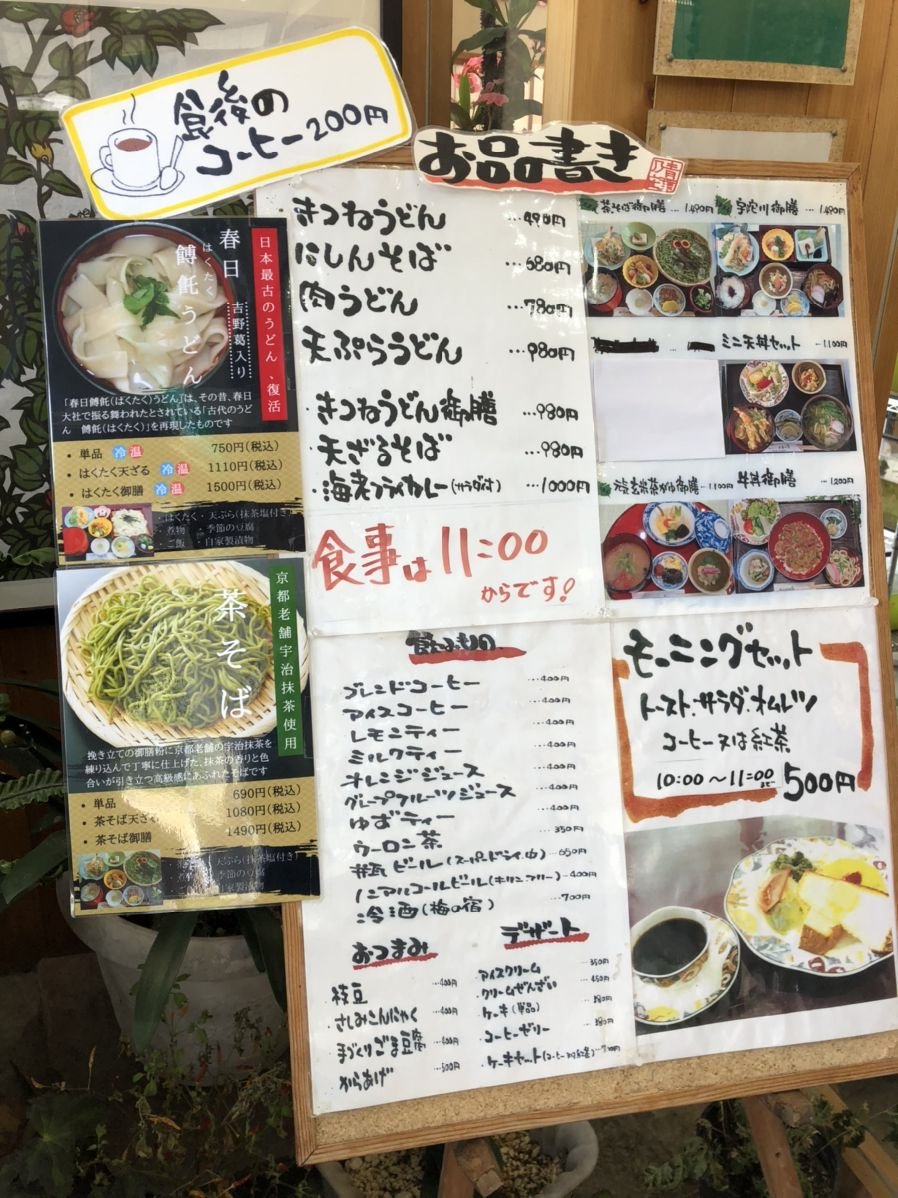 食後の
コーヒー200円
お品書き
きつねうどん …490円
にしんそば …680円
肉うどん …780円
天ぷらうどん …980円
・きつねうどん御膳 …980円
・天ざるそば …980円
・海老フライカレー(サラダ付) …1000円
食事は11:00
からです!
日本最古のうどん、復活
春日
はくたく
餺飥うどん
吉野葛入り
「春日餺飥(はくたく)うどん」は、その昔、春日
大社で振る舞われたとされている「古代のうど
ん 餺飥(はくたく)」を再現したものです
・単品 冷 温 750円(税込)
・はくたく天ざる 冷 温 1110円(税込)
・はくたく御膳 冷 温 1500円(税込)
・はくたく・天ぷら(抹茶塩付き)
・煮物 ・季節の豆腐
・ご飯 ・自家製漬物
京都老舗宇治抹茶使用
茶そば
挽き立ての御膳粉に京都老舗の宇治抹茶を
練り込んで丁寧に仕上げた、抹茶の香りと色
合いが引き立つ高級感にあふれたそばです
・単品 690円(税込)
・茶そば天ざる 1080円(税込)
・茶そば御膳 1490円(税込)
天ぷら(抹茶塩付き)
季節の豆腐
自家製漬物
茶そば御膳 …1,490円
宇陀川御膳 …1,490円
ミニ天丼セット …1,100円
茶がゆ御膳 …1,100円
牛丼御膳 …1,200円
飲みもの
ブレンドコーヒー …400円
アイスコーヒー …400円
レモンティー …400円
ミルクティー …400円
オレンジジュース …400円
グレープフルーツジュース …400円
ゆずティー …400円
ウーロン茶 …350円
瓶ビール(スーパードライ.中) …650円
ノンアルコールビール(キリンフリー) …400円
冷酒(梅の宿) …700円
おつまみ
枝豆 …400円
・さしみこんにゃく …400円
・手づくりごま豆腐
・からあげ …500円
デザート
・アイスクリーム …350円
・クリームぜんざい …450円
・ケーキ(単品)
・コーヒーゼリー
・ケーキセット(コーヒー又は紅茶)
モーニングセット
トースト.サラダ.オムレツ
コーヒー又は紅茶
10:00〜11:00まで 500円